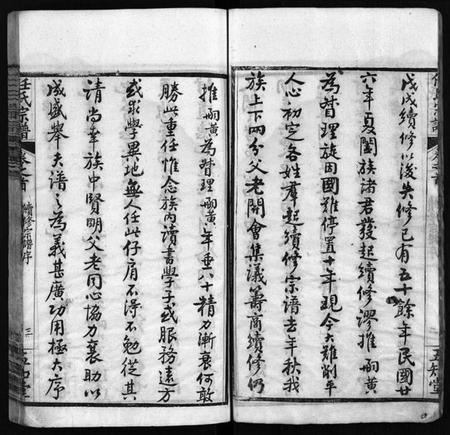 戊戌續修以後失修已有五十餘年民國廿
六年夏闔族諸君發起續修謬推雨黃
為督理旋因國難停置十年現今大難削平
人心初定各姓羣起續修宗譜去年秋我
族上下兩分父老開會集議籌商續修仍
推雨黃為督理雨黃年垂六十精力漸衰何敢
勝此重任惟念族內讀書學子或服務遠方
或求學異地無人任此仔肩不得不勉從其
請尚幸族中賢明父老同心協力襄助以
成盛舉夫譜之為義甚廣功用極大序
任氏宗譜
卷之首
續修宗譜序
三
五知堂
五知堂